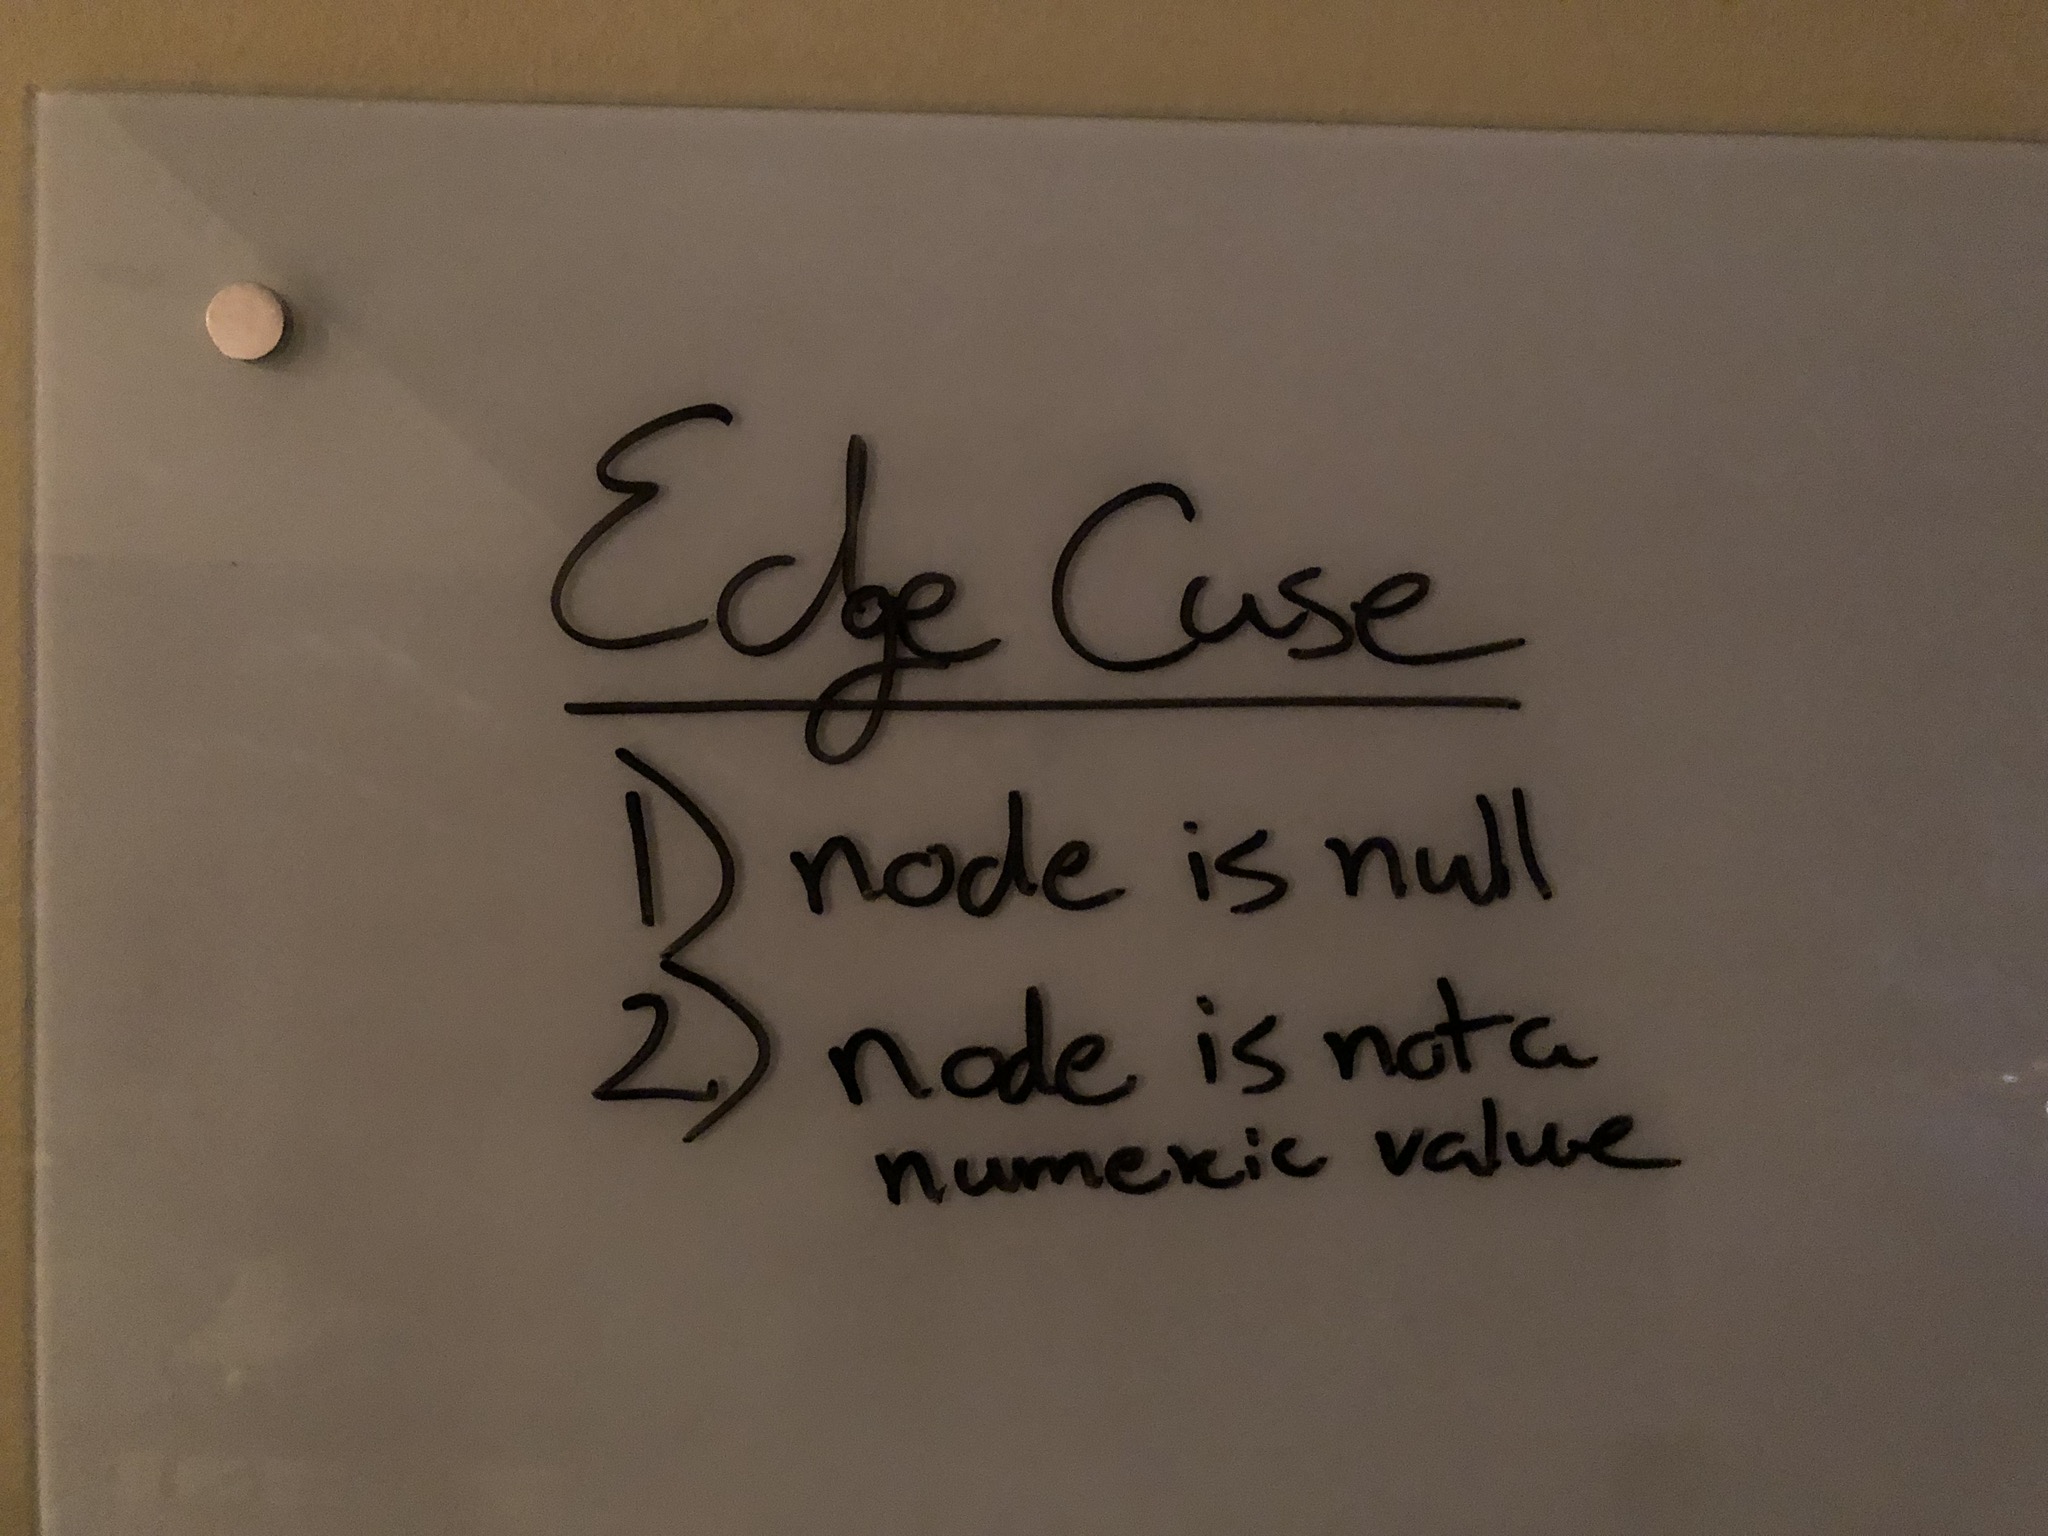 Edge Case
1) node is null
2) node is not a
numeric value